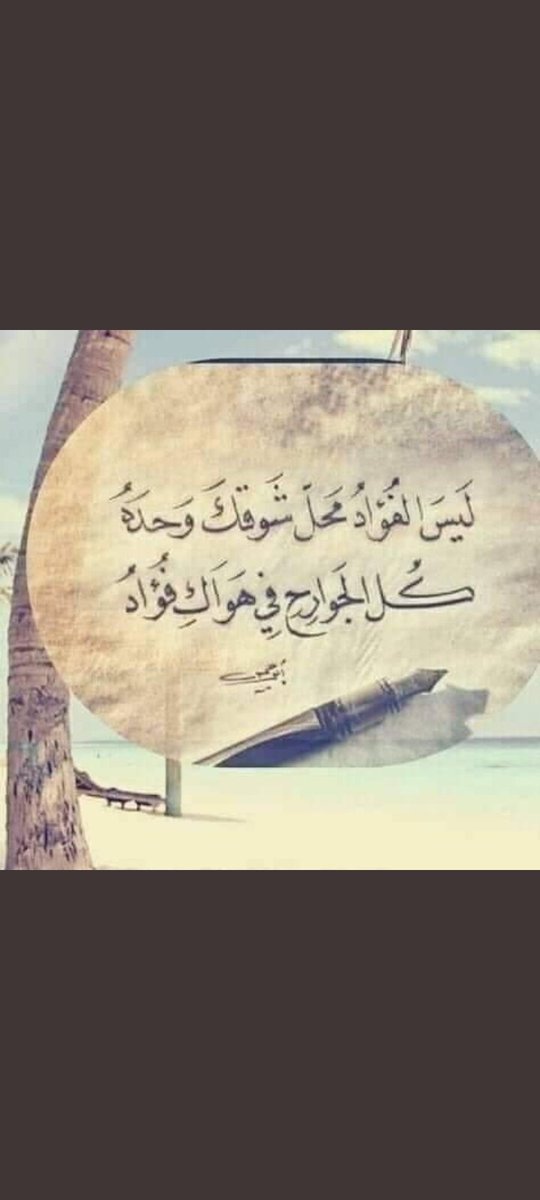 لَيسَ الفُؤادُ مَحلّ شَوقكَ وَحدَهُ
كُل الجَوارِحِ فِي هَوَاكِ فُؤَادُ